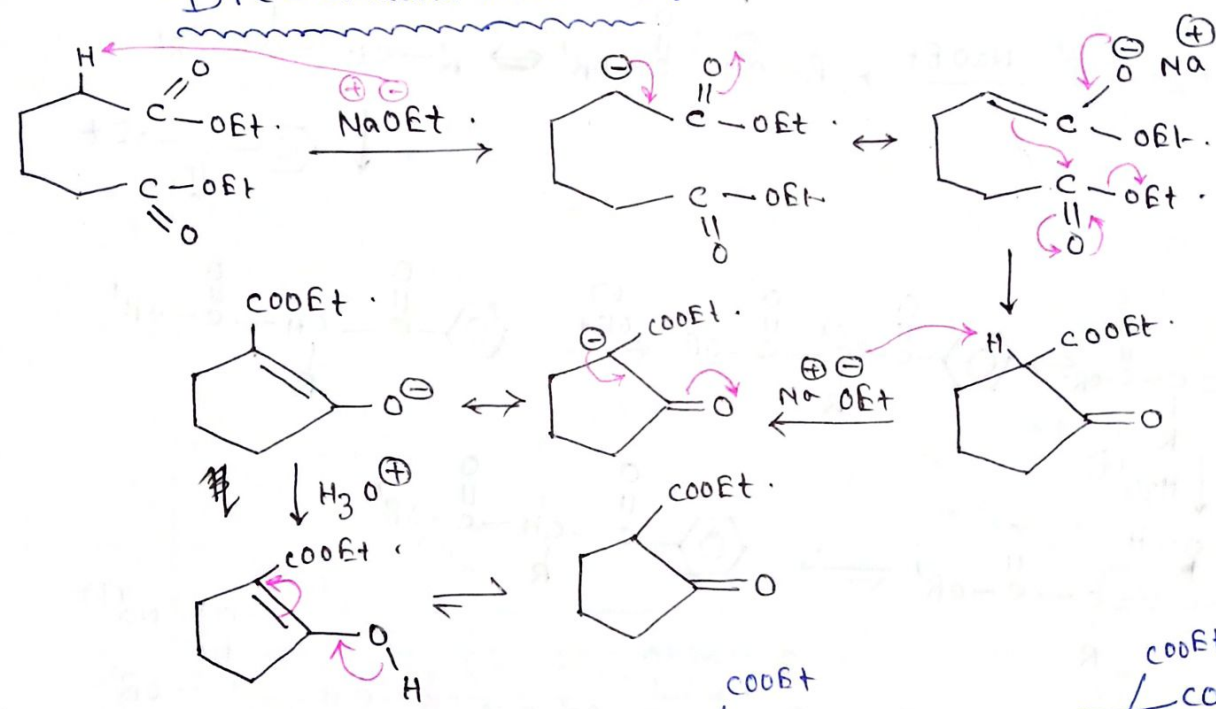 H
O
C
OEt.
⊕ ⊖
NaOEt.
C-OEt
O
⊖
O
C-OEt.
C-OEt
O
⊖ ⊕
O Na
C
OEt.
C
OEt.
O
COOEt.
O⊖
⊖
COOEt.
O
⊕ ⊖
Na OEt
H
COOEt.
O
H3O⊕
COOEt.
O
H
COOEt.
O
COOEt